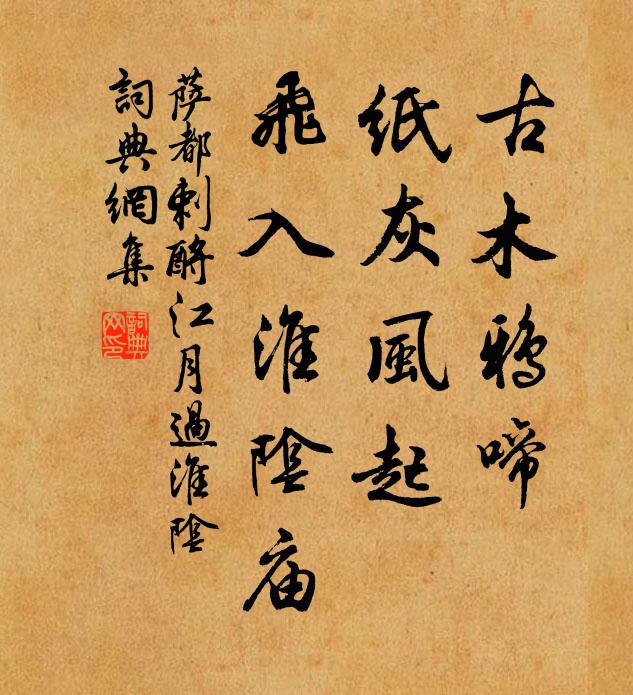 古木鴉啼
紙灰風起
飛入淮陰庙
薩都剌酹江月過淮陰
詞典網集
詞典网印